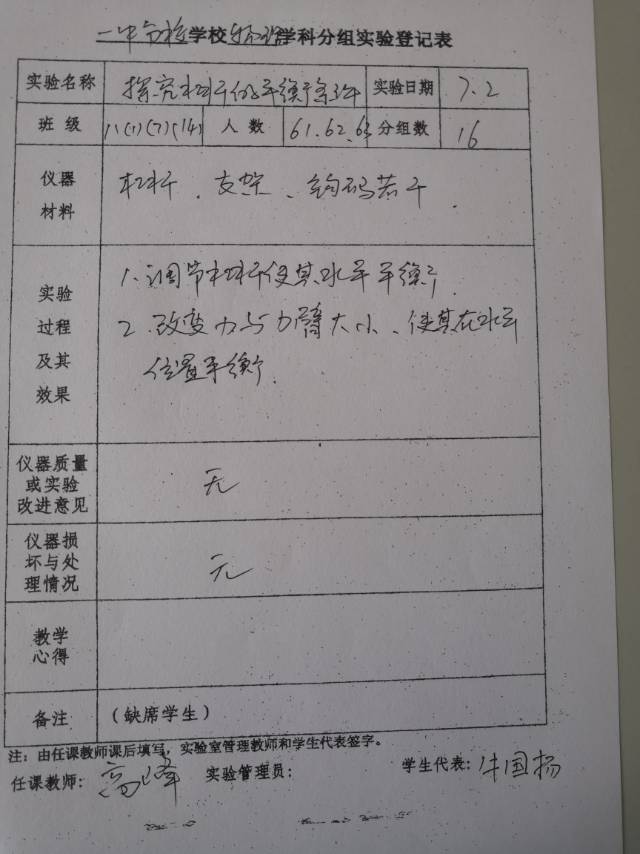 一中分校学校物理学科分组实验登记表
实验名称 探究杠杆的平衡条件 实验日期 7.2
班 级 八(1)(7)(14) 人 数 61.62.63 分组数 16
仪器
材料
杠杆、支架、钩码若干.
实验
过程
及其
效果
1.调节杠杆使其水平平衡.
2.改变力与力臂大小、使其在水平
位置平衡.
仪器质量
或实验
改进意见
无
仪器损
坏与处
理情况
无
教学
心得
备注 (缺席学生)
注：由任课教师课后填写，实验室管理教师和学生代表签字。
任课教师: 高峰 实验管理员: 学生代表: 牛国杨